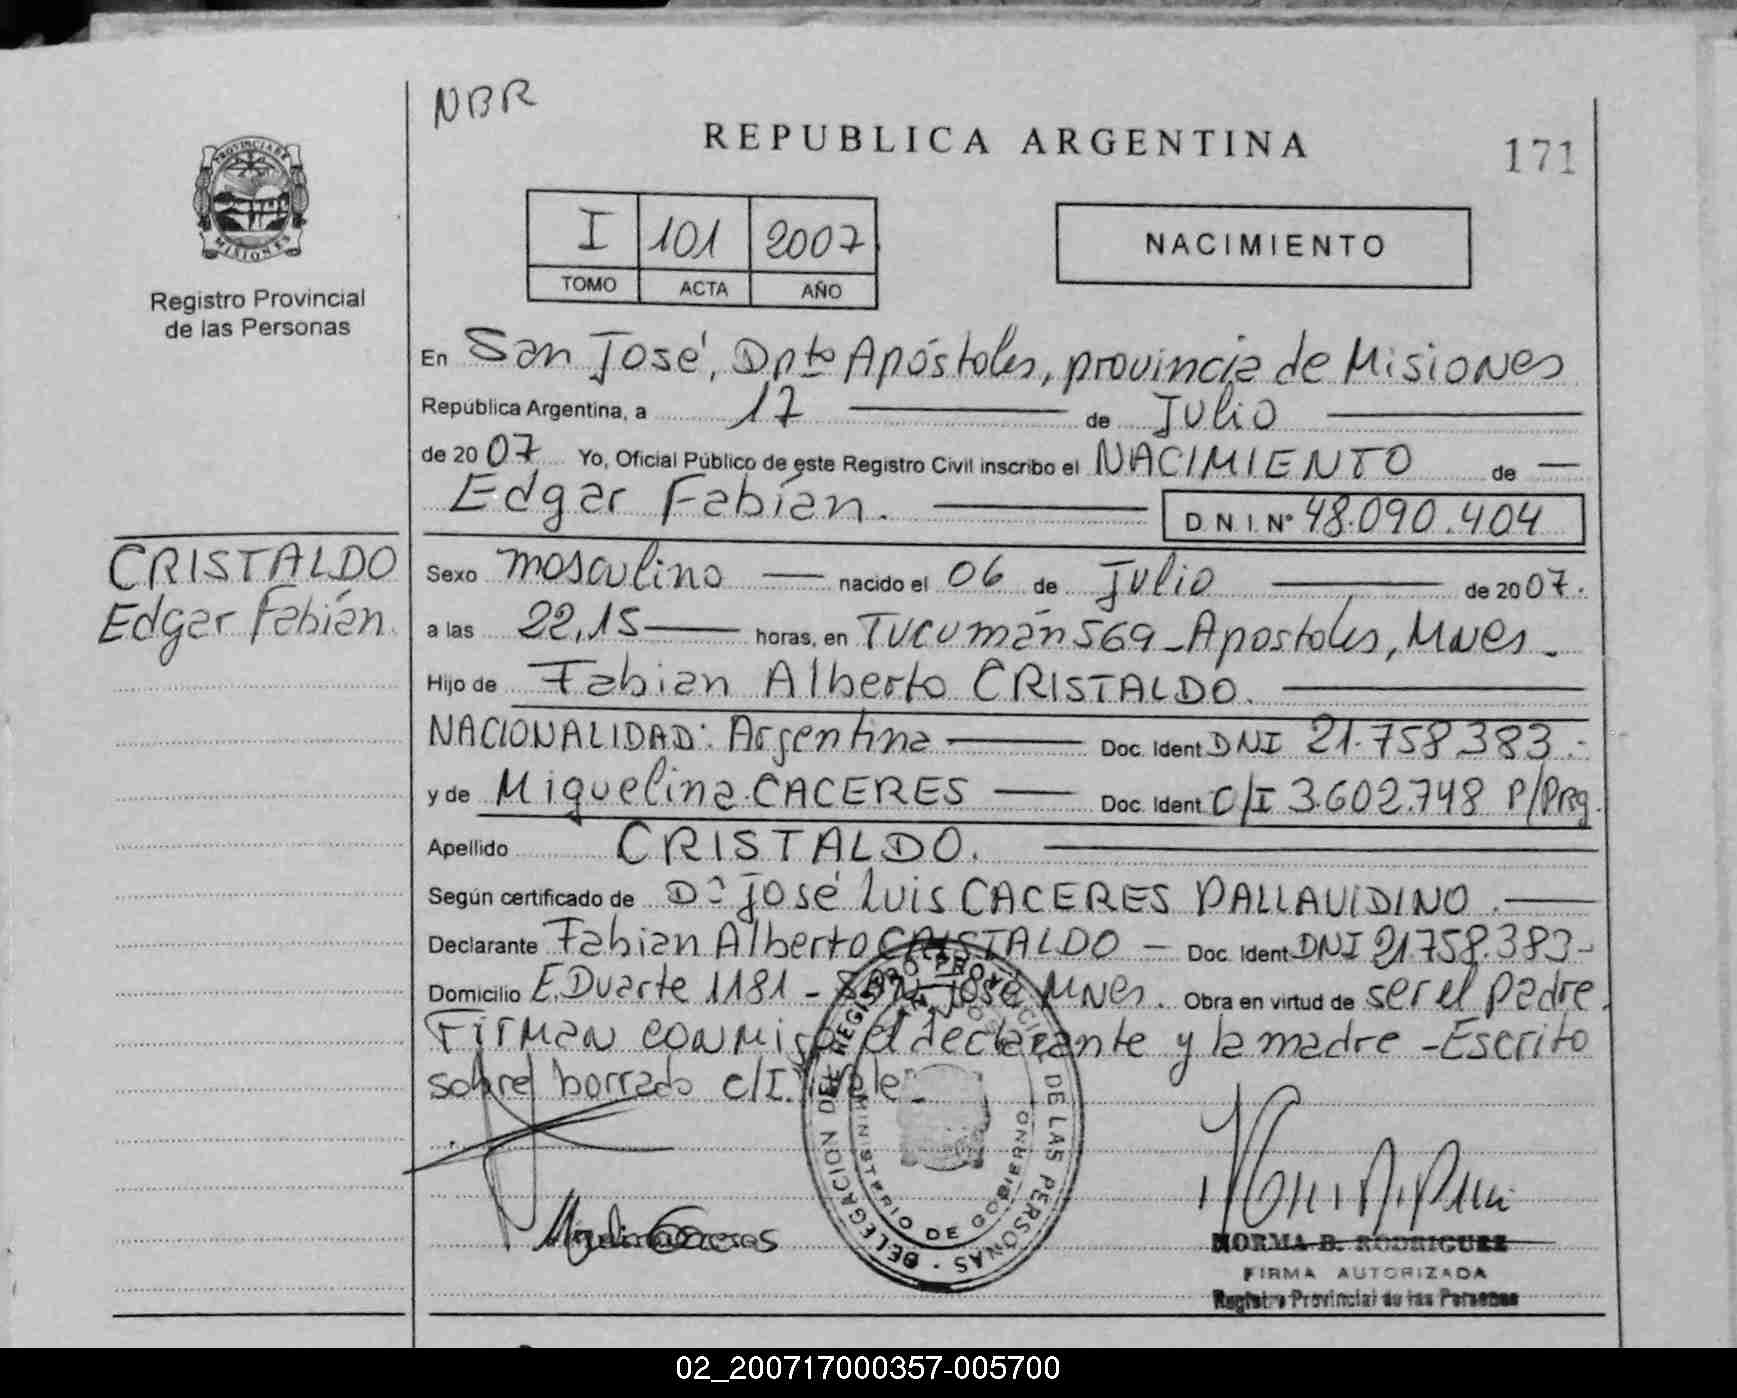 NBR
REPUBLICA ARGENTINA
171
PROVINCIA DE
MISIONES
Registro Provincial
de las Personas
I 101 2007
TOMO ACTA AÑO
NACIMIENTO
En San José, Dpto Apóstoles, provincia de Misiones
República Argentina, a 17 de Julio
de 2007 Yo, Oficial Público de este Registro Civil inscribo el NACIMIENTO de
Edgar Fabián.
D.N.I. Nº 48.090.404
CRISTALDO
Edgar Fabián.
Sexo masculino nacido el 06 de Julio de 2007.
a las 22,15 horas, en Tucumán 569 - Apostoles, Mnes.
Hijo de Fabian Alberto CRISTALDO.
NACIONALIDAD: Argentina Doc. Ident DNI 21.758.383.-
y de Miguelina CACERES Doc. Ident. C/I 3.602.748 P/Prg.
Apellido CRISTALDO.
Según certificado de Dº José Luis CACERES PALLAVIDINO.
Declarante Fabian Alberto CRISTALDO - Doc. Ident DNI 21.758.383-
Domicilio E. Duarte 1181 - San José Mnes. Obra en virtud de ser el padre.
Firman conmigo el declarante y la madre - Escrito
sobre borrado c/I. Vale.
DELEGACION DEL REGISTRO PROVINCIAL DE LAS PERSONAS
MINISTERIO DE GOBIERNO
Miguelina Caceres
NORMA B. RODRIGUEZ
FIRMA AUTORIZADA
Registro Provincial de las Personas
02_200717000357-005700